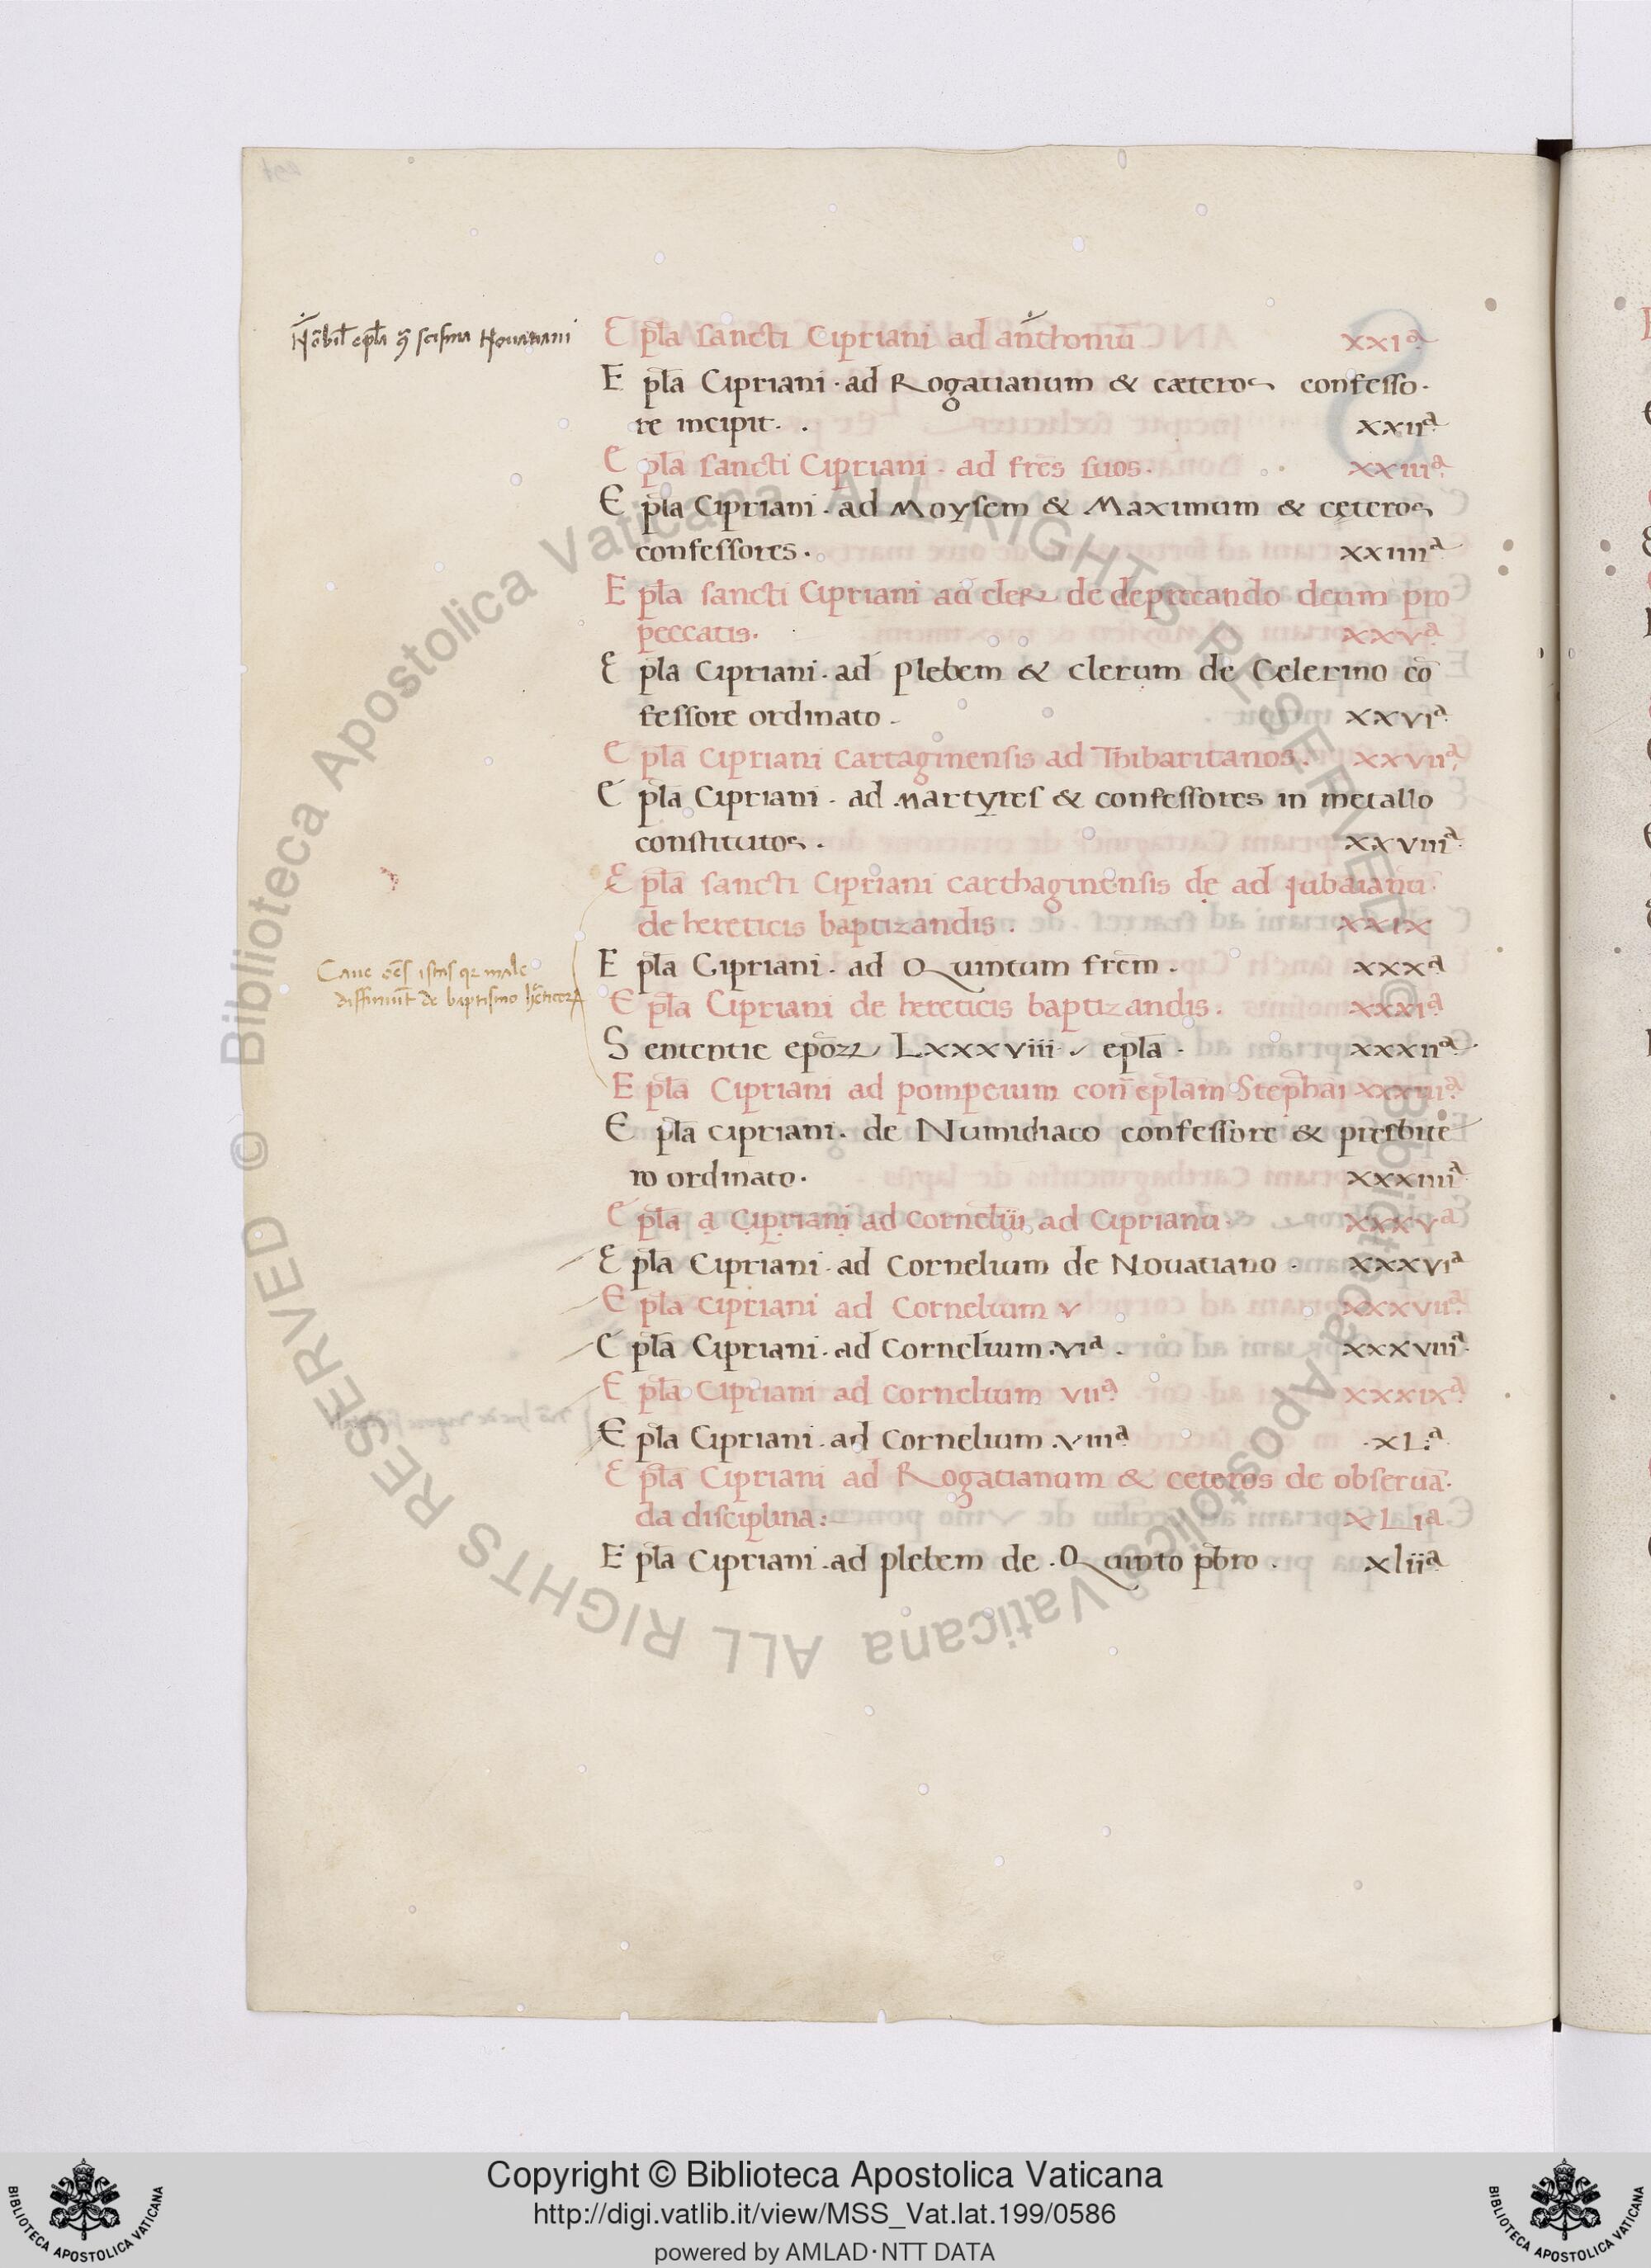 Nōbil epl̄a ꝯ̄ scisma Nouatiani
Epl̄a sancti Cipriani ad anthoniū XXIª
Epl̄a Cipriani · ad Rogatianum & cæteros confesso ·
re incipit · . XXIIª
Epl̄a sancti Cipriani · ad fr̄es suos · XXIIIª
Epl̄a Cipriani · ad Moysem & Maximum & cęteros
confessores · XXIIIIª
Epl̄a sancti Cipriani ad cleꝝ de deprecando deum pro
peccatis · XXVª
Epl̄a Cipriani · ad Plebem & clerum de Celerino cō
fessore ordinato · XXVIª
Epl̄a Cipriani Cartaginensis ad Thibaritanos · XXVIIª
Epl̄a Cipriani · ad martyres & confessores in metallo
constitutos · XXVIIIª
Epl̄a sancti Cipriani carthaginensis dẹ ad iubaianū ·
de hereticis baptizandis · XXIX
Caue oēs istas qꝛ male
diffiniūt de baptismo hēticoꝝ
Epl̄a Cipriani · ad Quintum fr̄em · XXXª
Epl̄a Cipriani de hereticis baptizandis · XXXIª
Sententie ep̄oꝝ LXXXViii epl̄a · XXXIIª
Epl̄a Cipriani ad pompeium con̄ epl̄am Steph̄ai XXXIIIª
Epl̄a cipriani · de Numidiaco confessore & presbite
ro ordinato · XXXIIIIª
Epl̄a ạ Cịpṛiạnị ad corneliū ad Ciprianū · XXXVª
Epl̄a Cipriani · ad Cornelium de Nouatiano · XXXVIª
Epl̄a cipriani ad Cornelium V XXXVIIª
Epl̄a Cipriani · ad Cornelium · VIª · XXXVIIIª
Epl̄a Cipriani ad Cornelium VIIª XXXIXª
Epl̄a Cipriani · ad Cornelium · VIIIª · XL ª
Epl̄a Cipriani ad Rogatianum & ceteros de obseruā ·
da disciplina : XLIª
Epl̄a Cipriani · ad plebem de · Quinto pb̄ro · xliiª
© Biblioteca Apostolica Vaticana ALL RIGHTS RESERVED
© Biblioteca Apostolica Vaticana ALL RIGHTS RESERVED
Copyright © Biblioteca Apostolica Vaticana
http://digi.vatlib.it/view/MSS_Vat.lat.199/0586
powered by AMLAD·NTT DATA
BIBLIOTECA APOSTOLICA VATICANA
BIBLIOTECA APOSTOLICA VATICANA